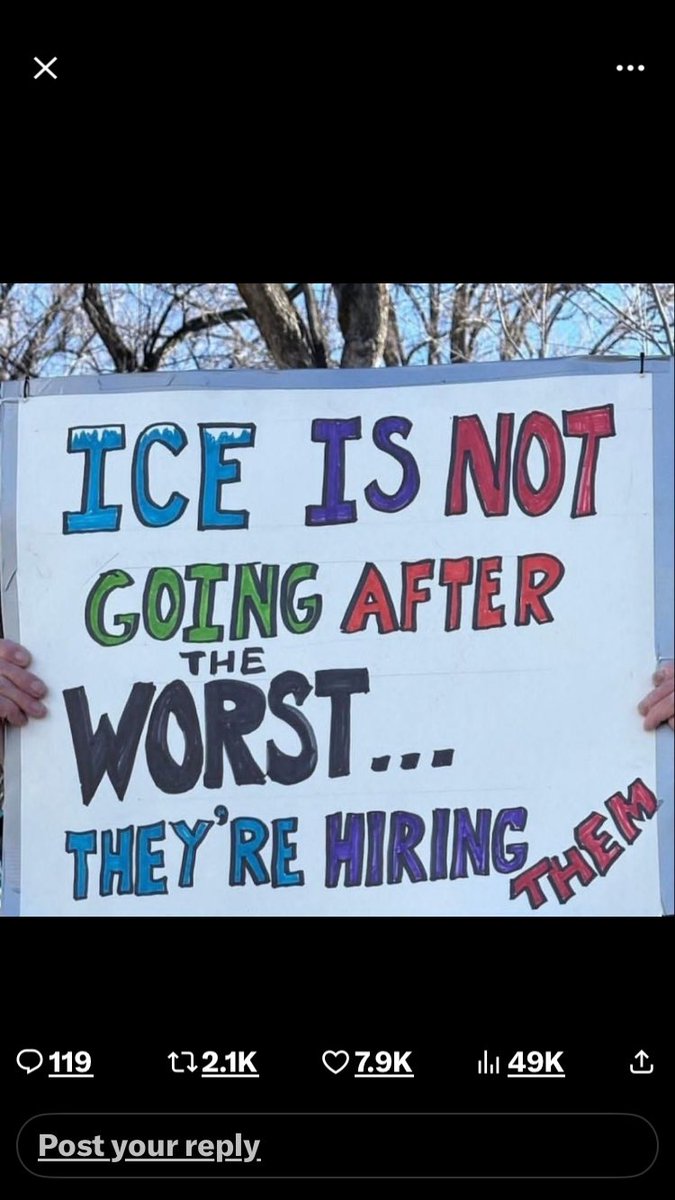 ICE IS NOT
GOING AFTER
THE
WORST...
THEY'RE HIRING THEM
119 2.1K 7.9K 49K
Post your reply